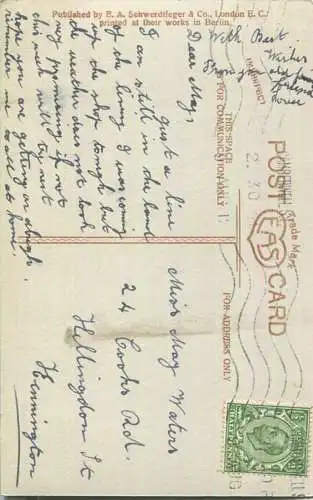 Published by E. A. Schwerdtfeger & Co., London E. C.
printed at their works in Berlin.
With Best
Wishes
From
old
Dear May,
Just a line
I am still in the land
of the living I was coming
up the shop tonight but
the weather does not look
very promising if not
this week will try next
hope you are getting on alright.
remember me to all at home
THIS SPACE
FOR COMMUNICATION ONLY
POST CARD
EAS
Trade Mark
FOR ADDRESS ONLY
2.30
Miss May Waters
24 Cooks Rd.
Hillingdon St
Kennington